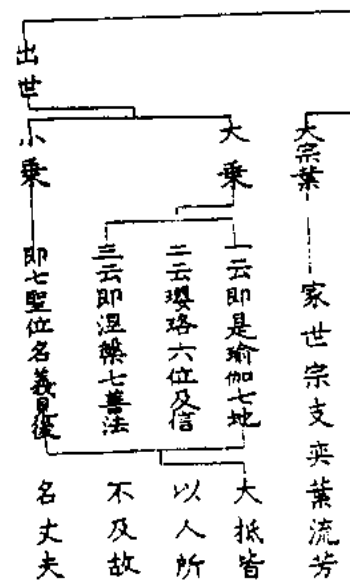 大宗葉
家世宗支奕葉流芳
出世
大乗
一云即是瑜伽七地
二云瓔珞六位及信
三云即涅槃七善法
小乗
即七聖位名義見後
大抵皆
以人所
不及故
名丈夫